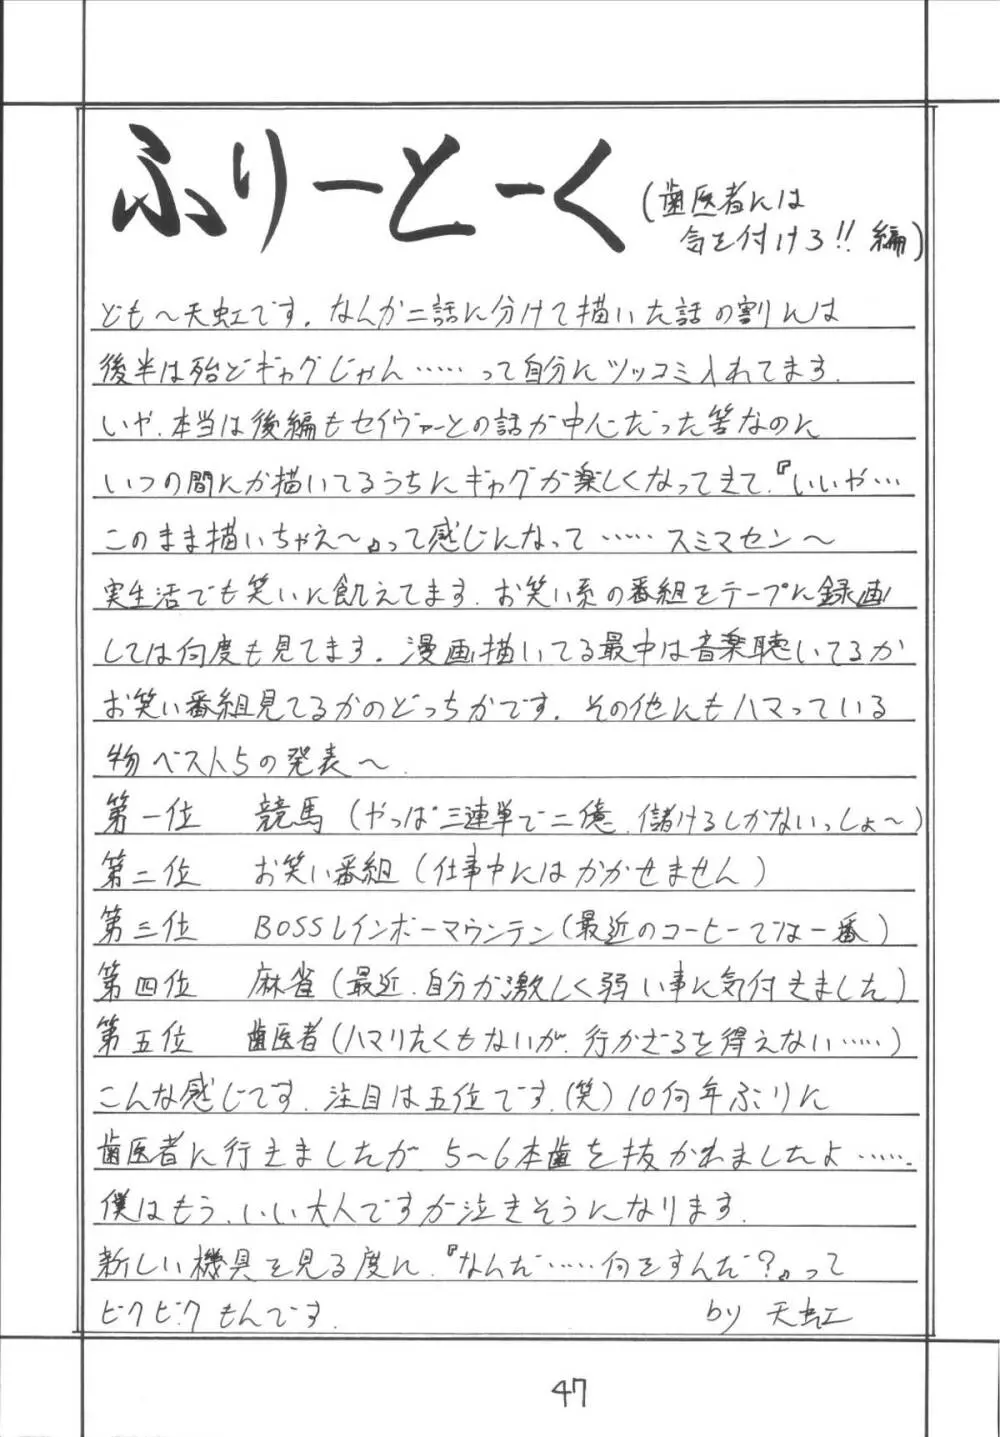 ふりーとーく
(歯医者には
気を付けろ!!編)
ども〜天虹です.なんか二話に分けて描いた話の割には
後半は殆どギャグじゃん……って自分にツッコミ入れてます.
いや.本当は後編もセイヴァーとの話が中心だった筈なのに
いつの間にか描いてるうちにギャグが楽しくなってきて.『いいや…
このまま描いちゃえ〜』って感じになって……スミマセン〜
実生活でも笑いに飢えてます.お笑い系の番組をテープに録画
しては何度も見てます.漫画描いてる最中は音楽聴いてるか
お笑い番組見てるかのどっちかです.その他にもハマっている
物ベスト5の発表〜.
第一位 競馬(やっぱ三連単で二億.儲けるしかないっしょ〜)
第二位 お笑い番組(仕事中にはかかせません)
第三位 BOSSレインボーマウンテン(最近のコーヒーでは一番)
第四位 麻雀(最近.自分が激しく弱い事に気付きました)
第五位 歯医者(ハマりたくもないが.行かざるを得えない……)
こんな感じです.注目は五位です.(笑)10何年ぶりに
歯医者に行きましたが.5〜6本歯を抜かれましたよ……
僕はもう.いい大人ですが泣きそうになります.
新しい機具を見る度に.『なんだ……何をすんだ?』って
ビクビクもんです.
by 天虹
47